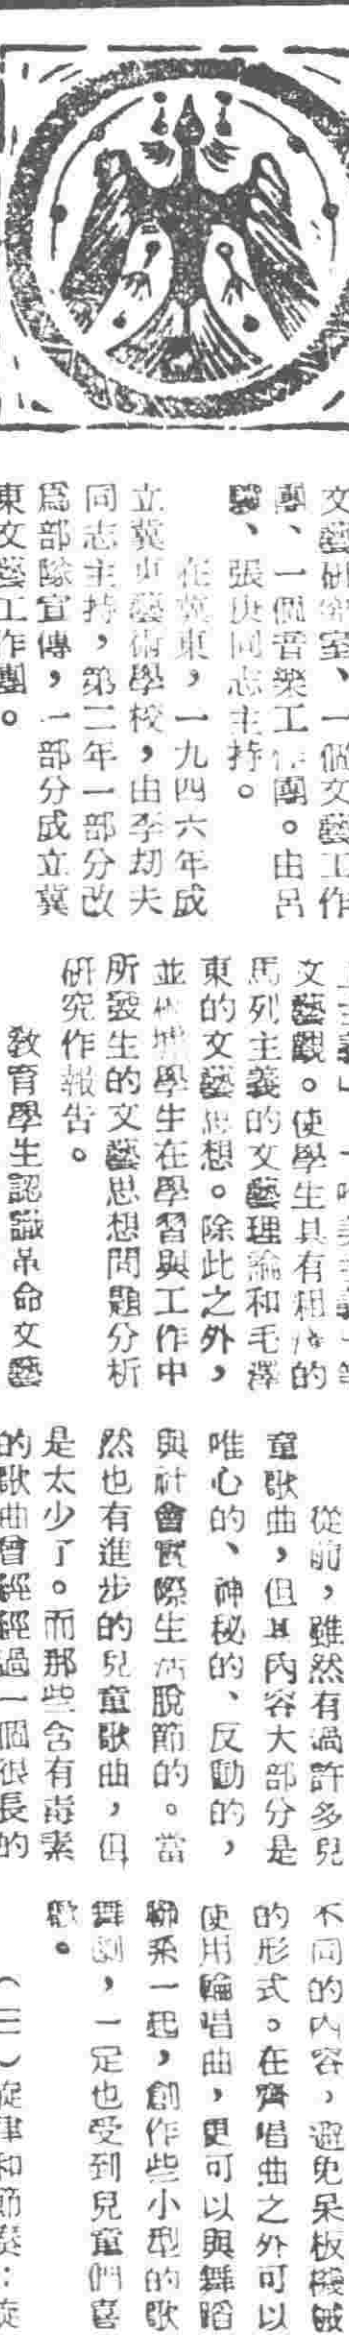 文藝研究室、一個文藝工作
團、一個音樂工作團。由呂
驥、張庚同志主持。
在冀東,一九四六年成
立冀東藝術學校,由李劫夫
同志主持,第二年一部分改
爲部隊宣傳,一部分成立冀
東文藝工作團。
文藝觀。使學生具有相當的
馬列主義的文藝理論和毛澤
東的文藝思想。除此之外,
並根據學生在學習與工作中
所發生的文藝思想問題分析
研究作報告。
教育學生認識革命文藝
從前,雖然有過許多兒
童歌曲,但其內容大部分是
唯心的、神秘的、反動的,
與社會實際生活脫節的。當
然也有進步的兒童歌曲,但
是太少了。而那些含有毒素
的歌曲曾經經過一個很長的
不同的內容,避免呆板機械
的形式。在齊唱曲之外可以
使用輪唱曲,更可以與舞蹈
聯系一起,創作些小型的歌
舞劇,一定也受到兒童們喜
歌。
(三)旋律和節奏:旋